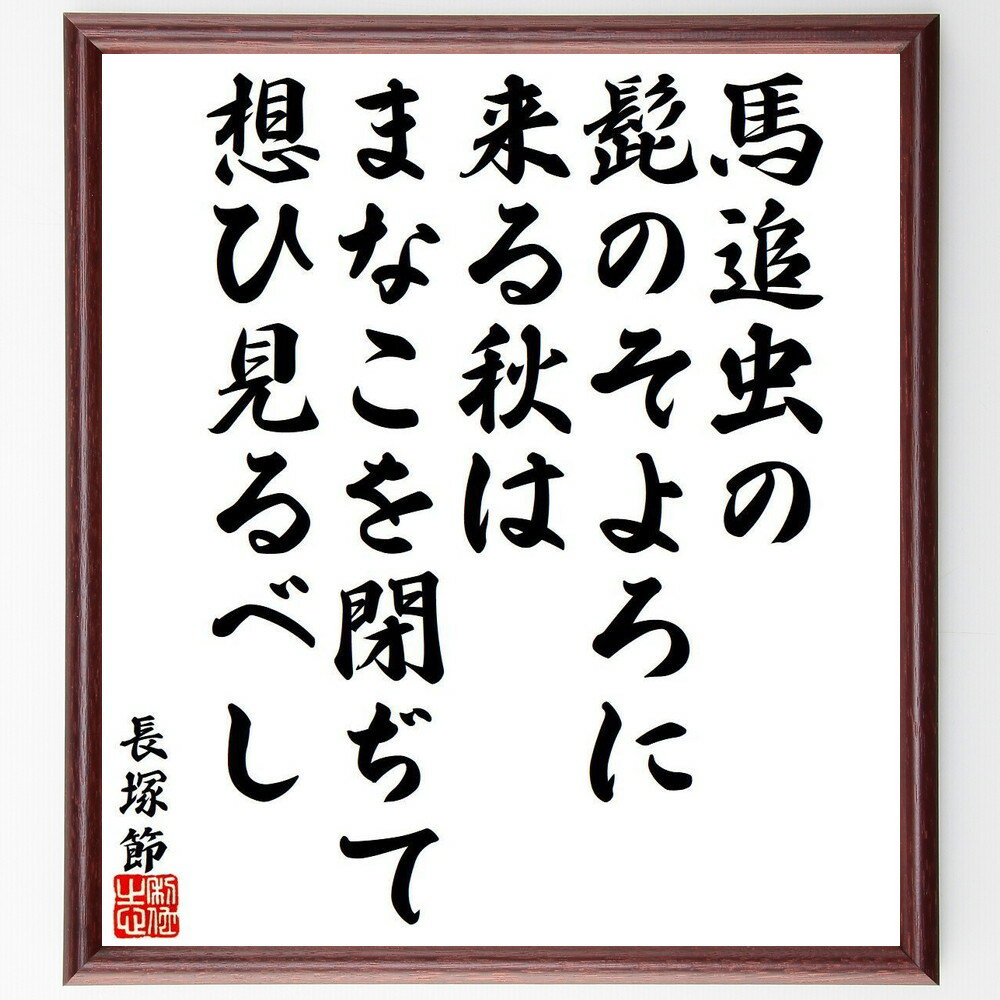 馬追虫の
髭のそよろに
来る秋は
まなこを閉ぢて
想ひ見るべし
長塚節